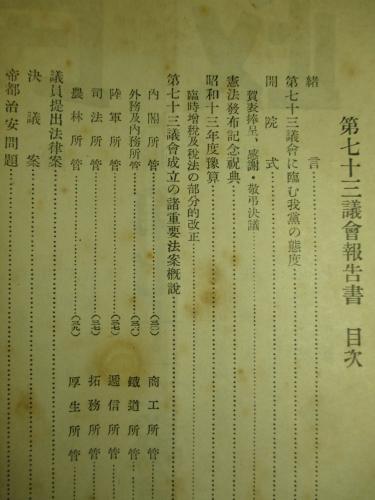 第七十三議會報告書 目次
緒言
第七十三議會に臨む我黨の態度
開院式
賀表捧呈、感謝・敬弔決議
憲法發布記念祝典
昭和十三年度豫算
臨時增稅及稅法の部分的改正
第七十三議會成立の諸重要法案槪說
內閣所管 (三) 商工所管
外務及內務所管 鐵道所管
陸軍所管 遞信所管
司法所管 拓務所管
農林所管 厚生所管
議員提出法律案
決議案
帝都治安問題